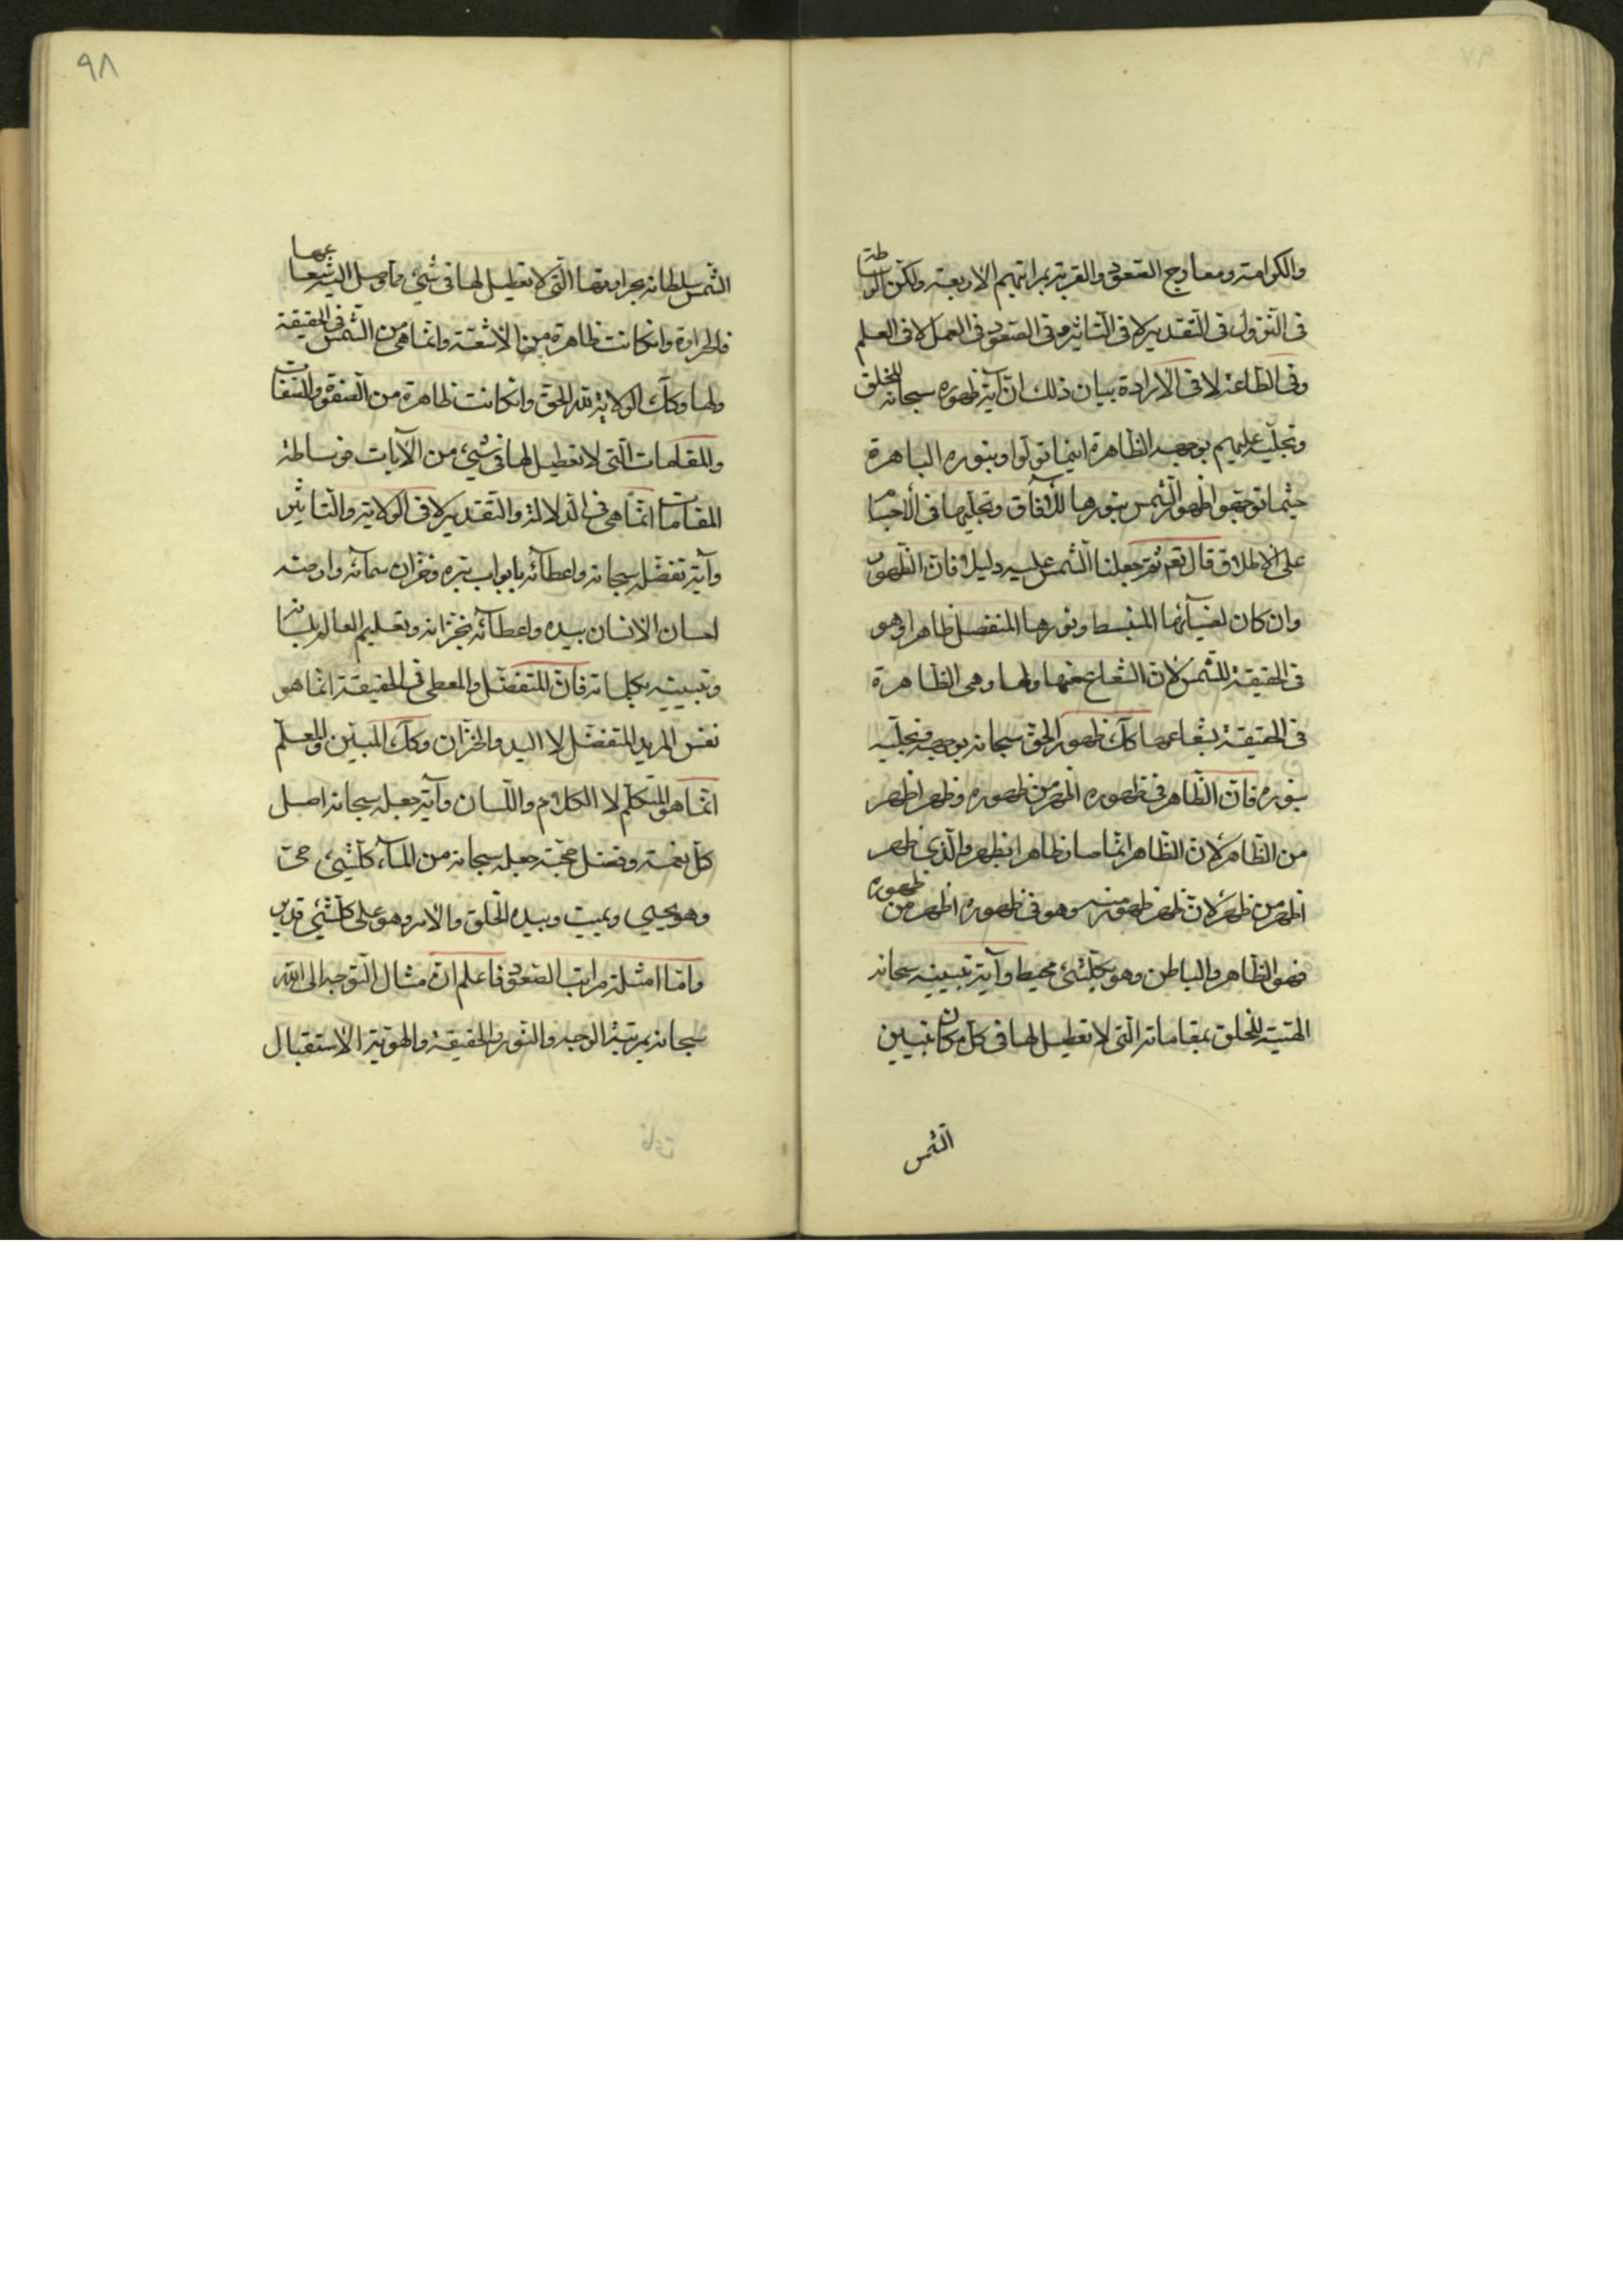 والكرامة ومعارج الصعود والقربة بمراتبهم الاربعة ولكن الوساطة
فى النزول فى التقدير لا فى التاثير وفى الصعود فى العمل لا فى العلم
وفى الطاعة لا فى الارادة بيان ذلك ان آية ظهوره سبحانه للخلق
وتجليه عليهم بوجهه الظاهرة اينما تولوا وبنوره الباهرة
حيثما توجهوا ظهور الشمس بنورها للآفاق وتجليها فى الاجسام
على الاطلاق قال تعم ثم جعلنا الشمس عليه دليلا فان الظهور
وان كان لضيآئها المنبسط ونورها المنفصل ظاهرا وهو
فى الحقيقة للشمس لان الشعاع عنها ولها وهى الظاهرة
فى الحقيقة بشعاعها كك ظهور الحق سبحانه بوجهه وتجليه
بنوره فان الظاهر فى ظهوره اظهر من ظهوره وظهر اظهر
من الظاهر لان الظاهر انما صار ظاهرا بظهر والذى ظهر
اظهر من ظهر لان ظهر ظهور منه وهو فى ظهوره اظهر من ظهوره
فهو الظاهر والباطن وهو بكلشئ محيط وآية تبيينه سبحانه
الهيته للخلق بمقاماته التى لا تعطيل لها فى كل مكان تبيين
الشمس
٩٨
الشمس سلطانه بحرارتها التى لا تعطيل لها فى شئ ما وصل اليه شعاعها
فالحرارة وانكانت ظاهرة من الاشعة وانما هى من الشمس فى الحقيقة
ولها وكك الولاية لله الحق وانكانت ظاهرة من الصفة والصفات
والمقامات التى لا تعطيل لها فى شئ من الآيات فوساطة
المقامات انما هى فى الدلالة والتقدير لا فى الولاية والتاثير
وآية تفضله سبحانه واعطآئه بابواب بره وخزان سمآئه وارضه
احسان الانسان بيده واعطآئه بخزانه وتعليم العالم بلسانه
وتبيينه بكلماته فان المتفضل والمعطى فى الحقيقة انما هو
نفس المريد المتفضل لا اليد والخزان وكك المبين والمعلم
انما هو المتكلم لا الكلام واللسان وآية جعله سبحانه اصل
كل نعمة وفضل محبة جعله سبحانه من المآء كلشئ حى
وهو يحيى ويميت وبيده الخلق والامر وهو على كلشئ قدير
واما امثلة مراتب الصعود فاعلم ان مثال التوجه الى الله
سبحانه بمرتبة الوجه والنور والحقيقة والهوية الاستقبال